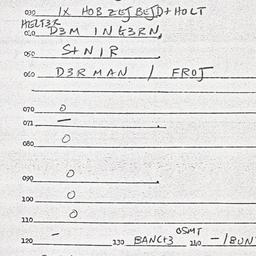 030 IX HOBZEJBEJD+HOLT
HELT3R
040 D3M IN&3RN,
050 S+NIR
060 D3RMAN / FROJ
070 0
071 —
080 0
090 0
100 0
110 0
OSMT
120 - 130 BANC+3 140 -/BUN